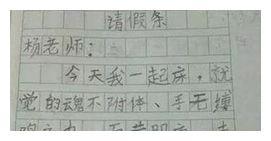 请假条
杨老师：
今天我一起床，就
觉的魂不附体、手无缚
鸡之力